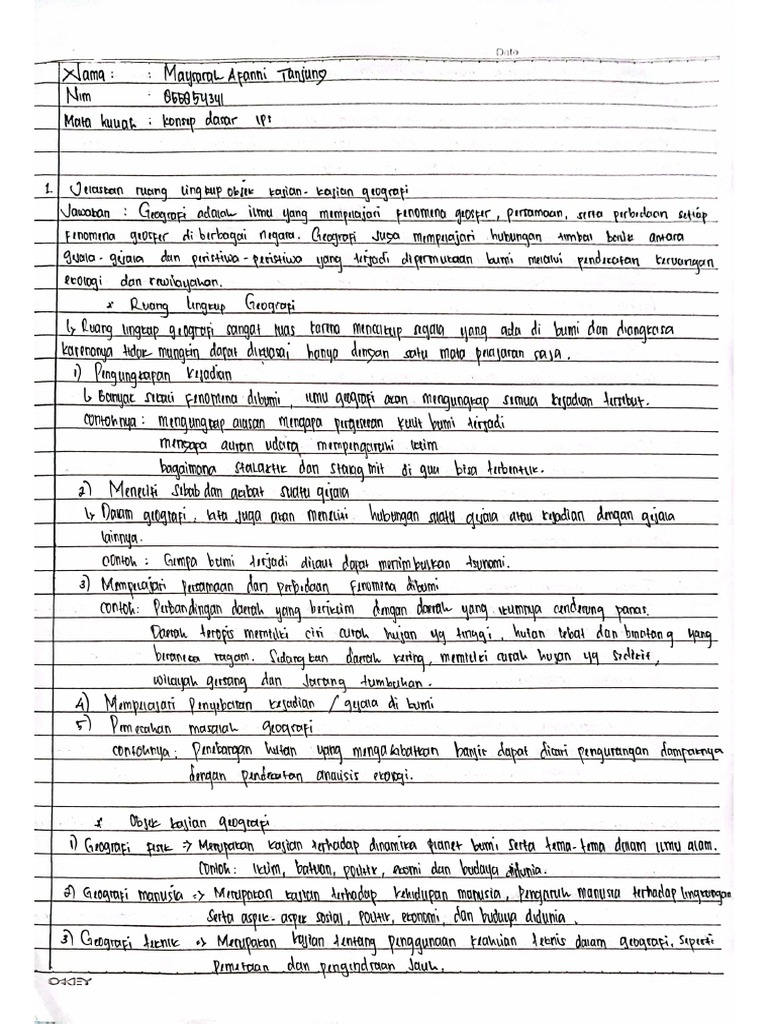 Date
Nama : : Maysarah Afanni Tanjung
Nim : 858854341
Mata kuliah : konsep dasar IPS
1. Jelaskan ruang lingkup objek kajian-kajian geografi
Jawaban : Geografi adalah ilmu yang mempelajari fenomena geosfer, persamaan, serta perbedaan setiap
fenomena geosfer di berbagai negara. Geografi juga mempelajari hubungan timbal balik antara
gejala-gejala dan peristiwa-peristiwa yang terjadi dipermukaan bumi melalui pendekatan keruangan
ekologi dan kewilayahan.
* Ruang lingkup Geografi
↳ Ruang lingkup geografi sangat luas karena mencakup segala yang ada di bumi dan diangkasa
karenanya tidak mungkin dapat dikuasai hanya dengan satu mata pelajaran saja.
1) Pengungkapan kejadian
↳ Banyak sekali fenomena dibumi, ilmu geografi akan mengungkap semua kejadian tersebut.
contohnya : mengungkap alasan mengapa pergeseran kulit bumi terjadi
mengapa aliran udara mempengaruhi iklim
bagaimana stalaktik dan stalagmit di gua bisa terbentuk.
2) Meneliti sebab dan akibat suatu gejala
↳ Dalam geografi, kita juga akan meneliti hubungan suatu gejala atau kejadian dengan gejala
lainnya.
contoh : Gempa bumi terjadi dilaut dapat menimbulkan tsunami.
3) Mempelajari persamaan dan perbedaan fenomena dibumi
contoh: Perbandingan daerah yang beriklim dengan daerah yang iklimnya cenderung panas.
Daerah tropis memiliki ciri curah hujan yg tinggi, hutan lebat dan binatang yang
beraneka ragam. Sedangkan daerah kering, memiliki curah hujan yg sedikit,
wilayah gersang dan jarang tumbuhan.
4) Mempelajari Penyebaran kejadian / gejala di bumi
5) Pemecahan masalah geografi
contohnya : Penebangan hutan yang mengakibatkan banjir dapat dicari pengurangan dampaknya
dengan pendekatan analisis ekologi.
* Objek kajian geografi
1) Geografi fisik => Merupakan kajian terhadap dinamika planet bumi serta tema-tema dalam ilmu alam.
Contoh: iklim, batuan, politik, ekomi dan budaya didunia.
2) Geografi manusia => Merupakan kajian terhadap kehidupan manusia, pengaruh manusia terhadap lingkungan
serta aspek-aspek sosial, politik, ekonomi, dan budaya didunia.
3) Geografi teknik => Merupakan kajian tentang penggunaan keahlian teknis dalam geografi, seperti
pemetaan dan pengindraan jauh.
OKEY